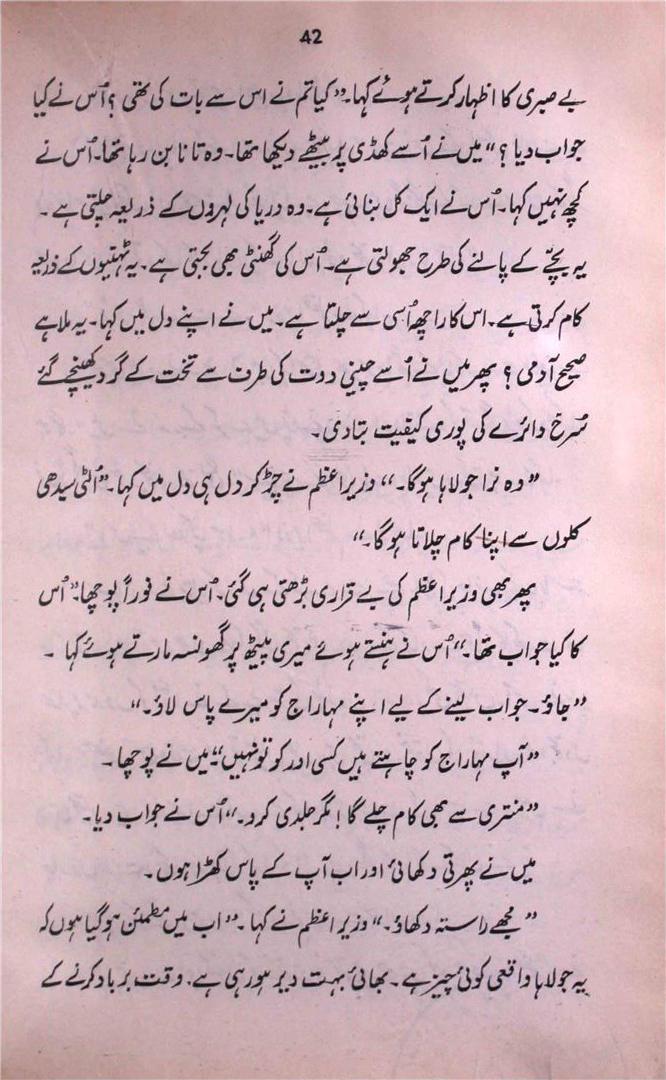 42
بے صبری کا اظہار کرتے ہوئے کہا۔ ”کیا تم نے اس سے بات کی تھی؟ اُس نے کیا
جواب دیا؟“ میں نے اُسے کھڈی پر بیٹھے دیکھا تھا۔ وہ تانا بن رہا تھا۔ اُس نے
کچھ نہیں کہا۔ اُس نے ایک کل بنائی ہے۔ وہ دریا کی لہروں کے ذریعہ چلتی ہے۔
یہ بچّے کے پالنے کی طرح جھولتی ہے۔ اُس کی گھنٹی بھی بجتی ہے۔ یہ ٹہنیوں کے ذریعہ
کام کرتی ہے۔ اس کا راچھ اُسی سے چلتا ہے۔ میں نے اپنے دل میں کہا۔ یہ ملا ہے
صحیح آدمی؟ پھر میں نے اُسے چینی دوت کی طرف سے تخت کے گرد کھینچے گئے
سُرخ دائرے کی پوری کیفیت بتا دی۔
”وہ نرا جولاہا ہوگا۔“ وزیراعظم نے چڑ کر دل ہی دل میں کہا۔ ”اُلٹی سیدھی
کلوں سے اپنا کام چلاتا ہوگا۔“
پھر بھی وزیراعظم کی بے قراری بڑھتی ہی گئی۔ اُس نے فوراً پوچھا۔ ”اُس
کا کیا جواب تھا۔“ اُس نے ہنستے ہوئے میری پیٹھ پر گھونسہ مارتے ہوئے کہا ۔
”جاؤ۔ جواب لینے کے لیے اپنے مہاراج کو میرے پاس لاؤ۔“
”آپ مہاراج کو چاہتے ہیں کسی اور کو تو نہیں“ میں نے پوچھا۔
”منتری سے بھی کام چلے گا! مگر جلدی کرو۔“ اُس نے جواب دیا۔
میں نے پھرتی دکھائی اور اب آپ کے پاس کھڑا ہوں۔
”مجھے راستہ دکھاؤ۔“ وزیراعظم نے کہا۔ ”اب میں مطمئن ہو گیا ہوں کہ
یہ جولاہا واقعی کوئی چیز ہے۔ بھائی بہت دیر ہو رہی ہے۔ وقت برباد کرنے کے